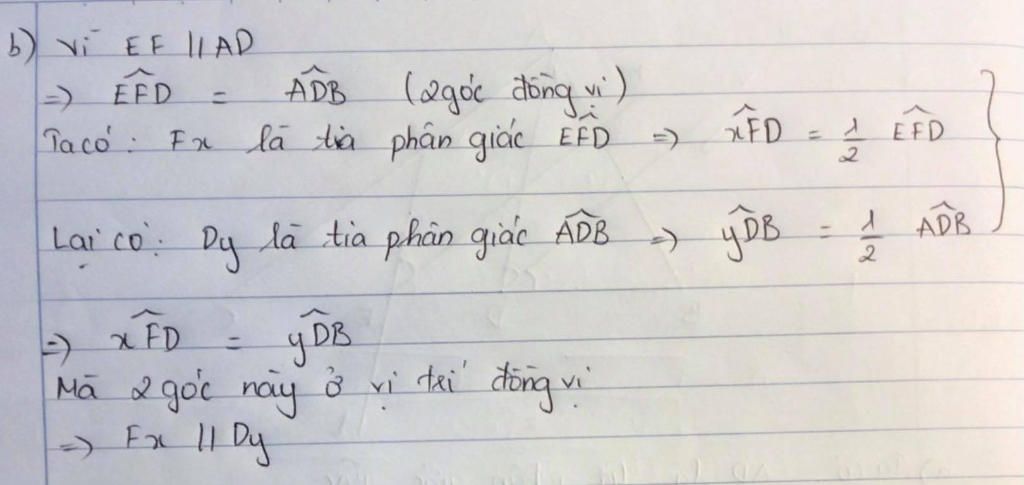 b) Vì EF // AD
=> \widehat{EFD} = \widehat{ADB} (2 góc đồng vị)
Ta có: Fx là tia phân giác \widehat{EFD} => \widehat{xFD} = \frac{1}{2} \widehat{EFD}
Lại có: Dy là tia phân giác \widehat{ADB} => \widehat{yDB} = \frac{1}{2} \widehat{ADB}
=> \widehat{xFD} = \widehat{yDB}
Mà 2 góc này ở vị trí đồng vị
=> Fx // Dy